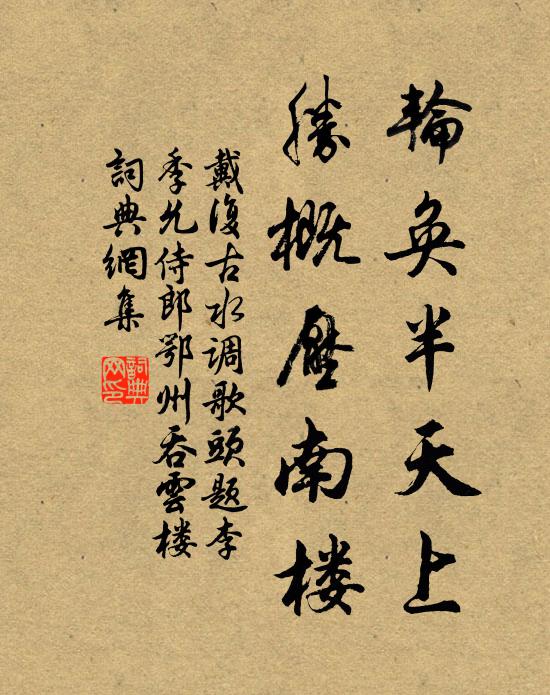 輪奐半天上
勝概壓南楼
戴復古水调歌頭题李
季允侍郎鄂州吞雲楼
詞典網集
詞典
网印